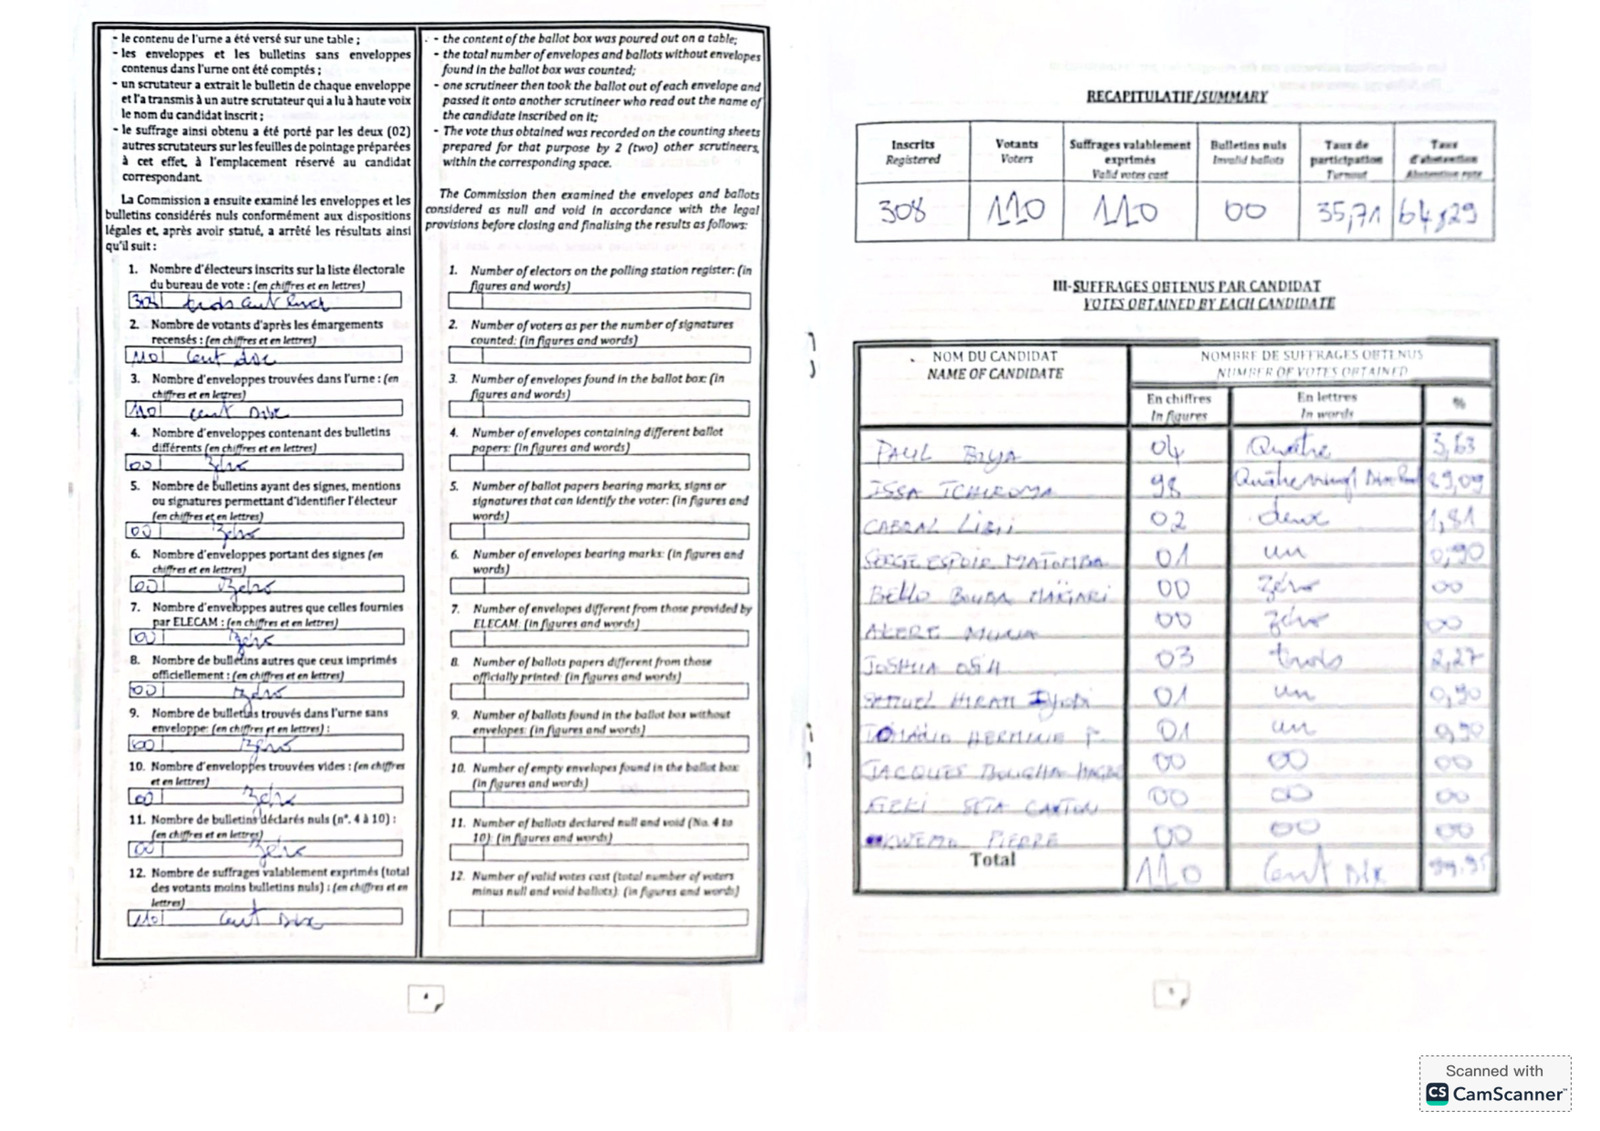 - le contenu de l'urne a été versé sur une table ;
- les enveloppes et les bulletins sans enveloppes
contenus dans l'urne ont été comptés ;
- un scrutateur a extrait le bulletin de chaque enveloppe
et l'a transmis à un autre scrutateur qui a lu à haute voix
le nom du candidat inscrit ;
- le suffrage ainsi obtenu a été porté par les deux (02)
autres scrutateurs sur les feuilles de pointage préparées
à cet effet, à l'emplacement réservé au candidat
correspondant.
La Commission a ensuite examiné les enveloppes et les
bulletins considérés nuls conformément aux dispositions
légales et, après avoir statué, a arrêté les résultats ainsi
qu'il suit :
1. Nombre d'électeurs inscrits sur la liste électorale
du bureau de vote : (en chiffres et en lettres)
308 trois cent huit
2. Nombre de votants d'après les émargements
recensés : (en chiffres et en lettres)
110 Cent dix
3. Nombre d'enveloppes trouvées dans l'urne : (en
chiffres et en lettres)
110 Cent Dix
4. Nombre d'enveloppes contenant des bulletins
différents (en chiffres et en lettres)
00 Zéro
5. Nombre de bulletins ayant des signes, mentions
ou signatures permettant d'identifier l'électeur
(en chiffres et en lettres)
00 Zéro
6. Nombre d'enveloppes portant des signes (en
chiffres et en lettres)
00 Zéro
7. Nombre d'enveloppes autres que celles fournies
par ELECAM : (en chiffres et en lettres)
00 Zéro
8. Nombre de bulletins autres que ceux imprimés
officiellement : (en chiffres et en lettres)
00 Zéro
9. Nombre de bulletins trouvés dans l'urne sans
enveloppe: (en chiffres et en lettres) :
00 Zéro
10. Nombre d'enveloppes trouvées vides : (en chiffres
et en lettres)
00 Zéro
11. Nombre de bulletins déclarés nuls (n°. 4 à 10) :
(en chiffres et en lettres)
00 Zéro
12. Nombre de suffrages valablement exprimés (total
des votants moins bulletins nuls) : (en chiffres et en
lettres)
110 Cent Dix
4
- the content of the ballot box was poured out on a table;
- the total number of envelopes and ballots without envelopes
found in the ballot box was counted;
- one scrutineer then took the ballot out of each envelope and
passed it onto another scrutineer who read out the name of
the candidate inscribed on it;
- The vote thus obtained was recorded on the counting sheets
prepared for that purpose by 2 (two) other scrutineers,
within the corresponding space.
The Commission then examined the envelopes and ballots
considered as null and void in accordance with the legal
provisions before closing and finalising the results as follows:
1. Number of electors on the polling station register: (in
figures and words)
2. Number of voters as per the number of signatures
counted: (in figures and words)
3. Number of envelopes found in the ballot box: (in
figures and words)
4. Number of envelopes containing different ballot
papers: (in figures and words)
5. Number of ballot papers bearing marks, signs or
signatures that can identify the voter: (in figures and
words)
6. Number of envelopes bearing marks: (in figures and
words)
7. Number of envelopes different from those provided by
ELECAM: (in figures and words)
8. Number of ballots papers different from those
officially printed: (in figures and words)
9. Number of ballots found in the ballot box without
envelopes: (in figures and words)
10. Number of empty envelopes found in the ballot box:
(in figures and words)
11. Number of ballots declared null and void (No. 4 to
10): (in figures and words)
12. Number of valid votes cast (total number of voters
minus null and void ballots): (in figures and words)
RECAPITULATIF/SUMMARY
Inscrits Registered Votants Voters Suffrages valablement exprimés Valid votes cast Bulletins nuls Invalid ballots Taux de participation Turnout Taux d'abstention Abstention rate
308 110 110 00 35,71 64,29
III-SUFFRAGES OBTENUS PAR CANDIDAT
VOTES OBTAINED BY EACH CANDIDATE
NOM DU CANDIDAT NOMBRE DE SUFFRAGES OBTENUS
NAME OF CANDIDATE NUMBER OF VOTES OBTAINED
En chiffres En lettres %
In figures In words
PAUL BIYA 04 Quatre 3,63
ISSA TCHIROMA 98 Quatre vingt Dix 89,09
CABRAL Libii 02 deux 1,81
SERGE ESPOIR MATOMBA 01 un 0,90
BELLO BOUBA MAÏGARI 00 zéro 00
AKERE MUNA 00 zéro 00
JOSHUA OSIH 03 trois 2,27
HIRAM 01 un 0,90
HERMINE P. 01 un 0,90
JACQUES BOUGHA 00 00 00
SETA CAXTON 00 00 00
KWEMO PIERRE 00 00 00
Total 110 Cent Dix
5
Scanned with
CS CamScanner